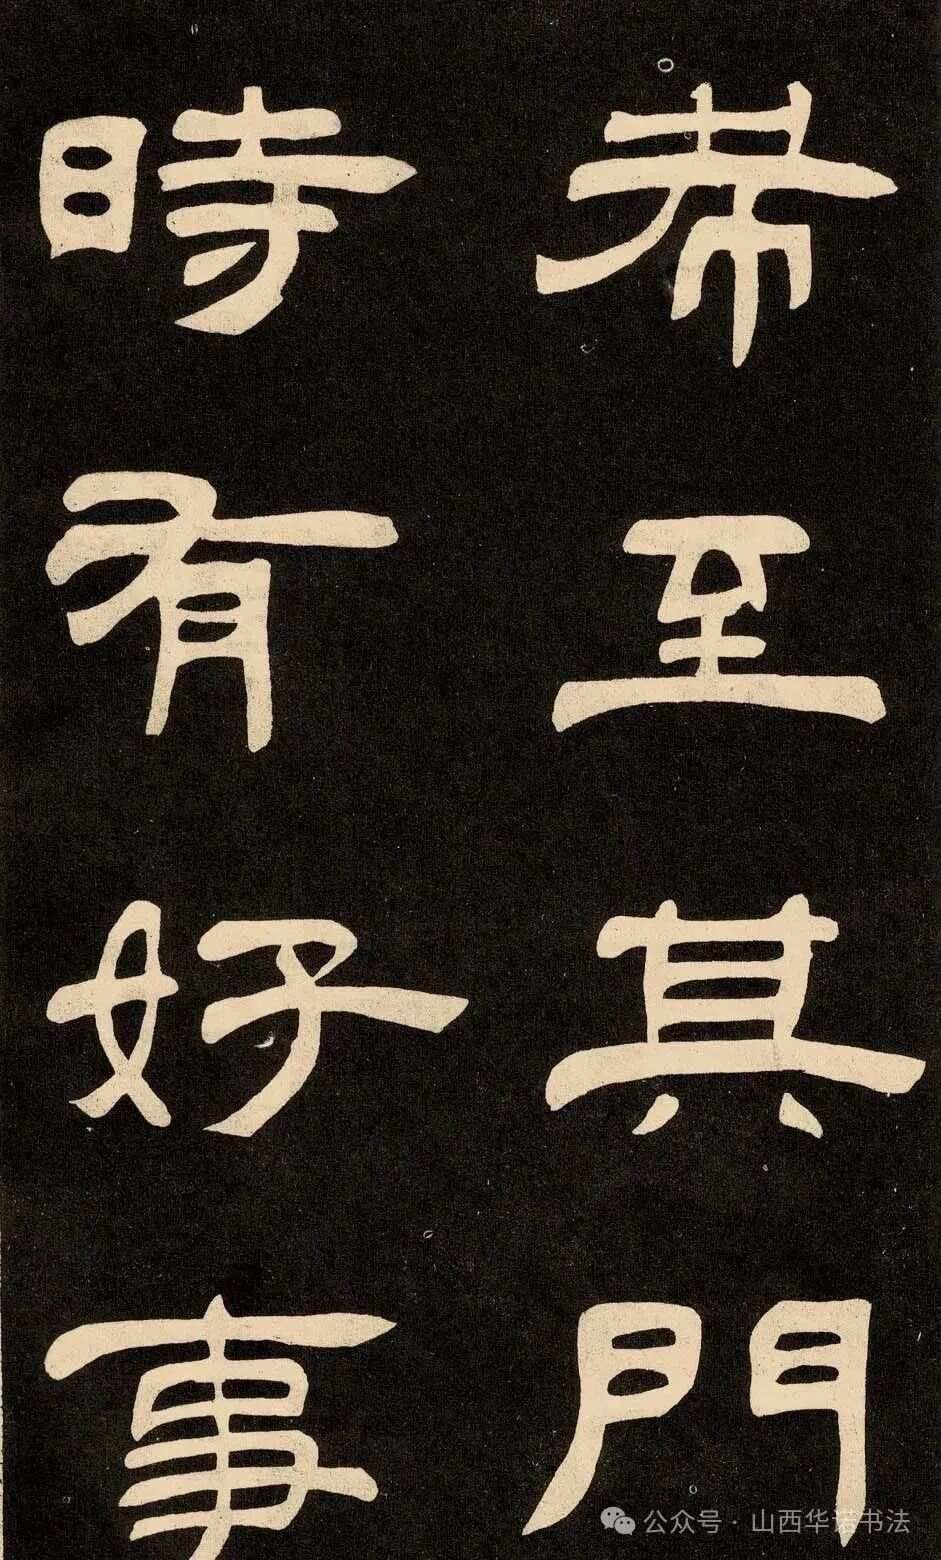 希至其門
時有好事
公众号 · 山西华诺书法